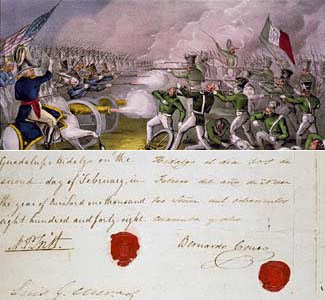 Guadalupe Hidalgo on the
second day of February, in
the year of our Lord one thousand
eight hundred and forty eight
Hidalgo el dia dos de
Febrero del año de
mil ochocientos
cuarenta y ocho
Bernardo Couto
Luis G. Cuevas